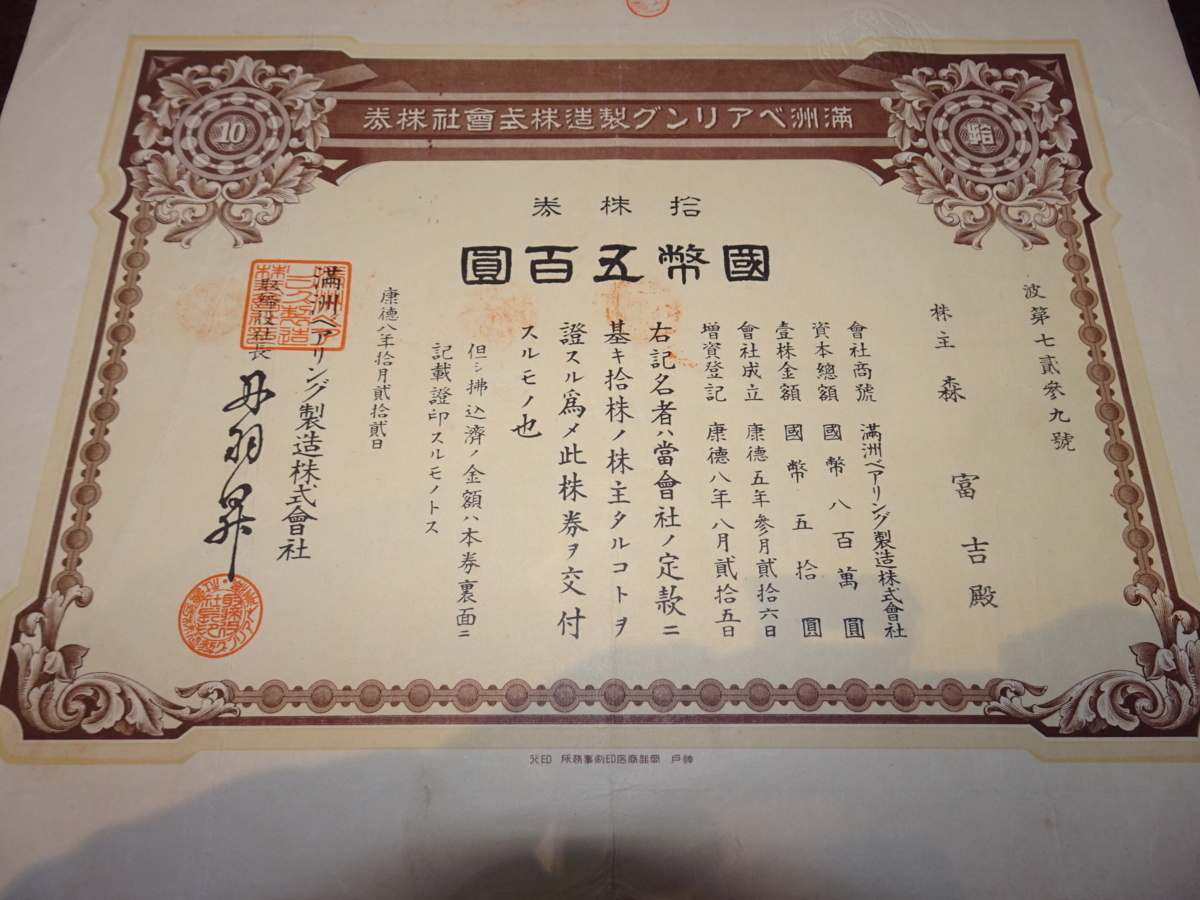 満洲ベアリング製造株式會社株券
10
拾
拾株券
國幣五百圓
波第七貳參九號
株主 森 富吉殿
會社商號 滿洲ベアリング製造株式會社
資本總額 國幣八百萬圓
壹株金額 國幣五拾圓
會社成立 康德五年參月貳拾六日
增資登記 康德八年八月貳拾五日
右記名者ハ當會社ノ定款ニ
基キ拾株ノ株主タルコトヲ
證スル爲メ此株券ヲ交付
スルモノ也
但シ拂込濟ノ金額ハ本券裏面ニ
記載證印スルモノトス
康德八年拾月貳拾貳日
滿洲ベアリング製造株式會社
取締役社長 丹羽昇
神戸
印刷事務所 印行